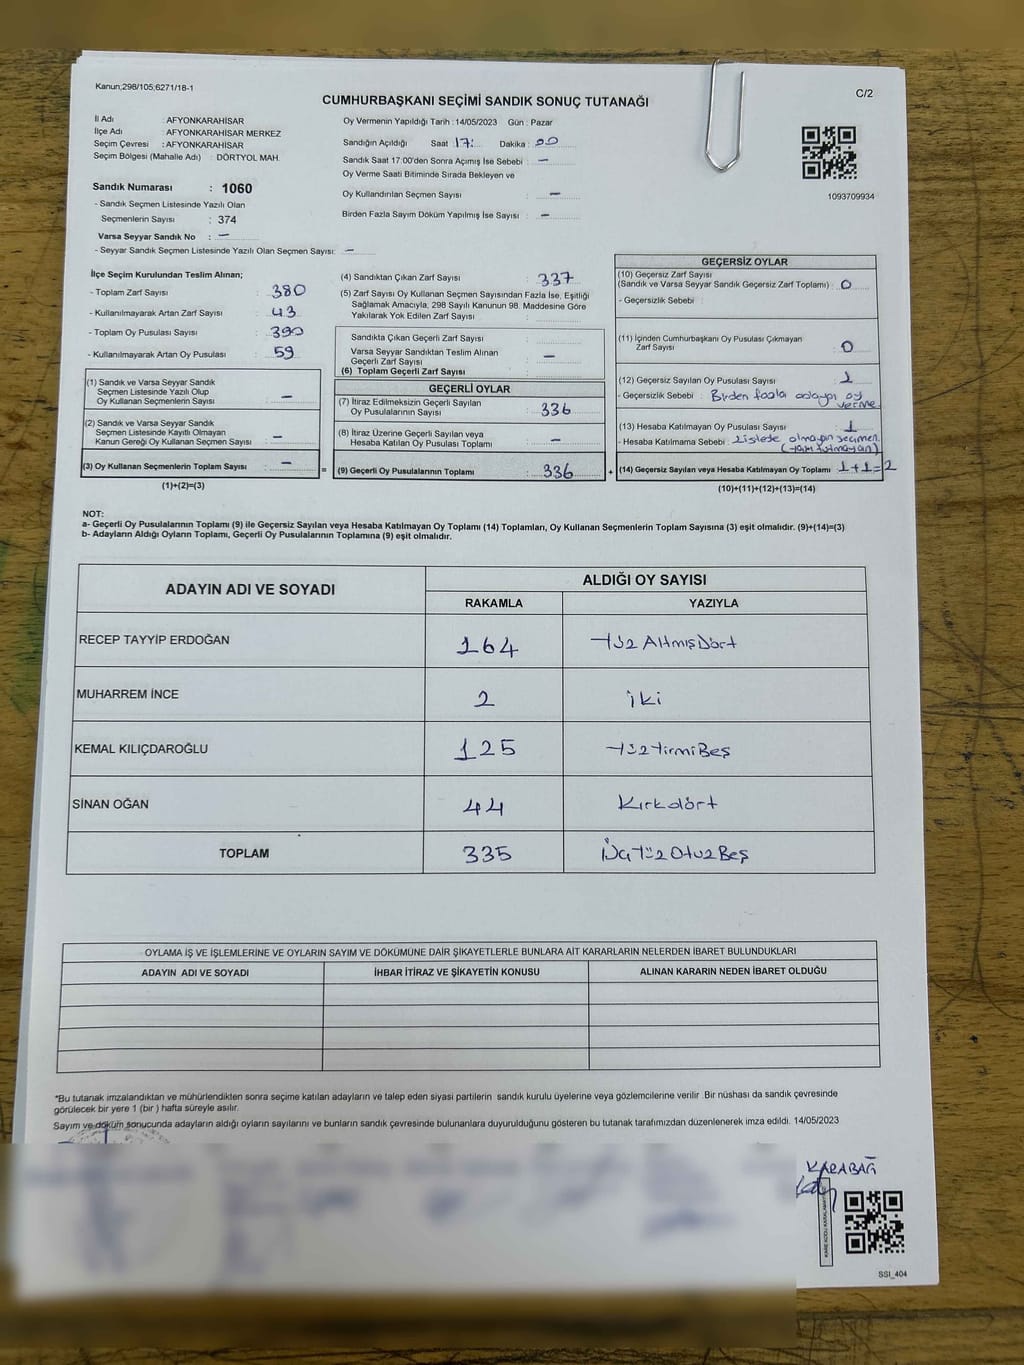 Kanun;298/105;6271/18-1
C/2
CUMHURBAŞKANI SEÇİMİ SANDIK SONUÇ TUTANAĞI
İl Adı : AFYONKARAHİSAR
İlçe Adı : AFYONKARAHİSAR MERKEZ
Seçim Çevresi : AFYONKARAHİSAR
Seçim Bölgesi (Mahalle Adı) : DÖRTYOL MAH.
Sandık Numarası : 1060
- Sandık Seçmen Listesinde Yazılı Olan
Seçmenlerin Sayısı : 374
Varsa Seyyar Sandık No : –
- Seyyar Sandık Seçmen Listesinde Yazılı Olan Seçmen Sayısı: –
Oy Vermenin Yapıldığı Tarih : 14/05/2023 Gün : Pazar
Sandığın Açıldığı Saat 17: Dakika : 00
Sandık Saat 17:00'den Sonra Açımış İse Sebebi : –
Oy Verme Saati Bitiminde Sırada Bekleyen ve
Oy Kullandırılan Seçmen Sayısı : –
Birden Fazla Sayım Döküm Yapılmış İse Sayısı : –
1093709934
İlçe Seçim Kurulundan Teslim Alınan;
- Toplam Zarf Sayısı : 380
- Kullanılmayarak Artan Zarf Sayısı : 43
- Toplam Oy Pusulası Sayısı : 390
- Kullanılmayarak Artan Oy Pusulası : 59
(1) Sandık ve Varsa Seyyar Sandık
Seçmen Listesinde Yazılı Olup
Oy Kullanan Seçmenlerin Sayısı : –
(2) Sandık ve Varsa Seyyar Sandık
Seçmen Listesinde Kayıtlı Olmayan
Kanun Gereği Oy Kullanan Seçmen Sayısı : –
(3) Oy Kullanan Seçmenlerin Toplam Sayısı : –
(1)+(2)=(3)
(4) Sandıktan Çıkan Zarf Sayısı : 337
(5) Zarf Sayısı Oy Kullanan Seçmen Sayısından Fazla İse, Eşitliği
Sağlamak Amacıyla, 298 Sayılı Kanunun 98. Maddesine Göre
Yakılarak Yok Edilen Zarf Sayısı :
Sandıkta Çıkan Geçerli Zarf Sayısı :
Varsa Seyyar Sandıktan Teslim Alınan
Geçerli Zarf Sayısı : –
(6) Toplam Geçerli Zarf Sayısı :
=
GEÇERLİ OYLAR
(7) İtiraz Edilmeksizin Geçerli Sayılan
Oy Pusulalarının Sayısı : 336
(8) İtiraz Üzerine Geçerli Sayılan veya
Hesaba Katılan Oy Pusulası Toplamı : –
(9) Geçerli Oy Pusulalarının Toplamı : 336
+
GEÇERSİZ OYLAR
(10) Geçersiz Zarf Sayısı
(Sandık ve Varsa Seyyar Sandık Geçersiz Zarf Toplamı) : 0
- Geçersizlik Sebebi :
(11) İçinden Cumhurbaşkanı Oy Pusulası Çıkmayan
Zarf Sayısı : 0
(12) Geçersiz Sayılan Oy Pusulası Sayısı : 1
- Geçersizlik Sebebi : Birden fazla adaya oy
verme
(13) Hesaba Katılmayan Oy Pusulası Sayısı : 1
- Hesaba Katılmama Sebebi : Listede olmayan seçmen.
(14) Geçersiz Sayılan veya Hesaba Katılmayan Oy Toplamı : 1+1=2
(10)+(11)+(12)+(13)=(14)
NOT:
a- Geçerli Oy Pusulalarının Toplamı (9) ile Geçersiz Sayılan veya Hesaba Katılmayan Oy Toplamı (14) Toplamları, Oy Kullanan Seçmenlerin Toplam Sayısına (3) eşit olmalıdır. (9)+(14)=(3)
b- Adayların Aldığı Oyların Toplamı, Geçerli Oy Pusulalarının Toplamına (9) eşit olmalıdır.
ADAYIN ADI VE SOYADI
ALDIĞI OY SAYISI
RAKAMLA YAZIYLA
RECEP TAYYİP ERDOĞAN 164 Yüz AltmışDört
MUHARREM İNCE 2 iki
KEMAL KILIÇDAROĞLU 125 YüzYirmiBeş
SİNAN OĞAN 44 Kırkdört
TOPLAM 335 ÜçYüzOtuzBeş
OYLAMA İŞ VE İŞLEMLERİNE VE OYLARIN SAYIM VE DÖKÜMÜNE DAİR ŞİKAYETLERLE BUNLARA AİT KARARLARIN NELERDEN İBARET BULUNDUKLARI
ADAYIN ADI VE SOYADI İHBAR İTİRAZ VE ŞİKAYETİN KONUSU ALINAN KARARIN NEDEN İBARET OLDUĞU
*Bu tutanak imzalandıktan ve mühürlendikten sonra seçime katılan adayların ve talep eden siyasi partilerin sandık kurulu üyelerine veya gözlemcilerine verilir. Bir nüshası da sandık çevresinde
görülecek bir yere 1 (bir) hafta süreyle asılır.
Sayım ve döküm sonucunda adayların aldığı oyların sayılarını ve bunların sandık çevresinde bulunanlara duyurulduğunu gösteren bu tutanak tarafımızdan düzenlenerek imza edildi. 14/05/2023
KARABAĞ
SSI_404